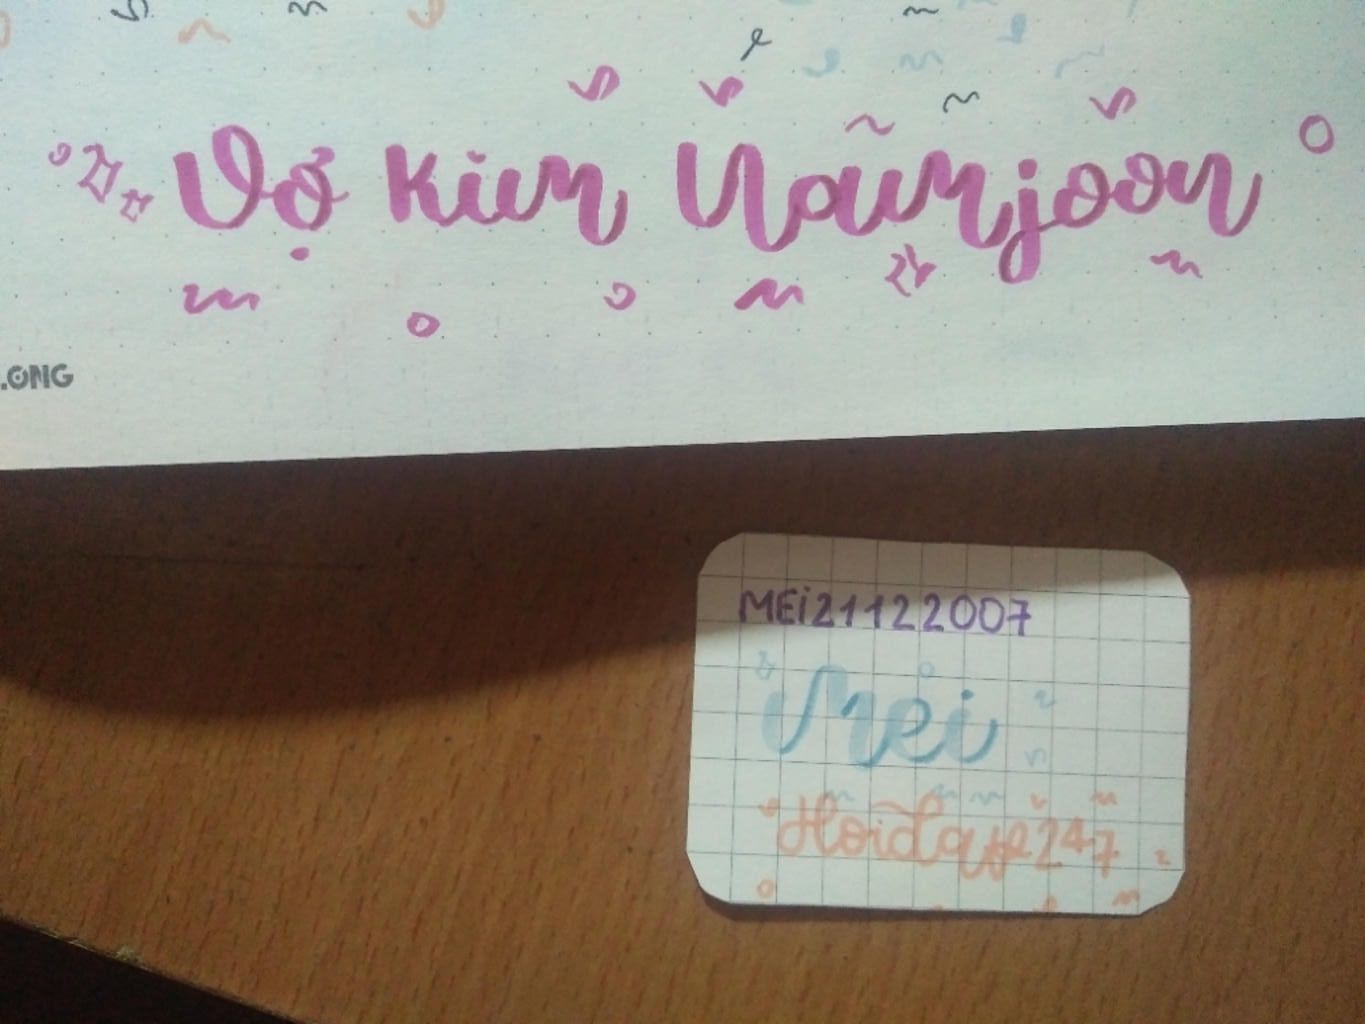 Vợ Kim Namjoon
.ONG
MEi21122007
Mei
Hoidap247